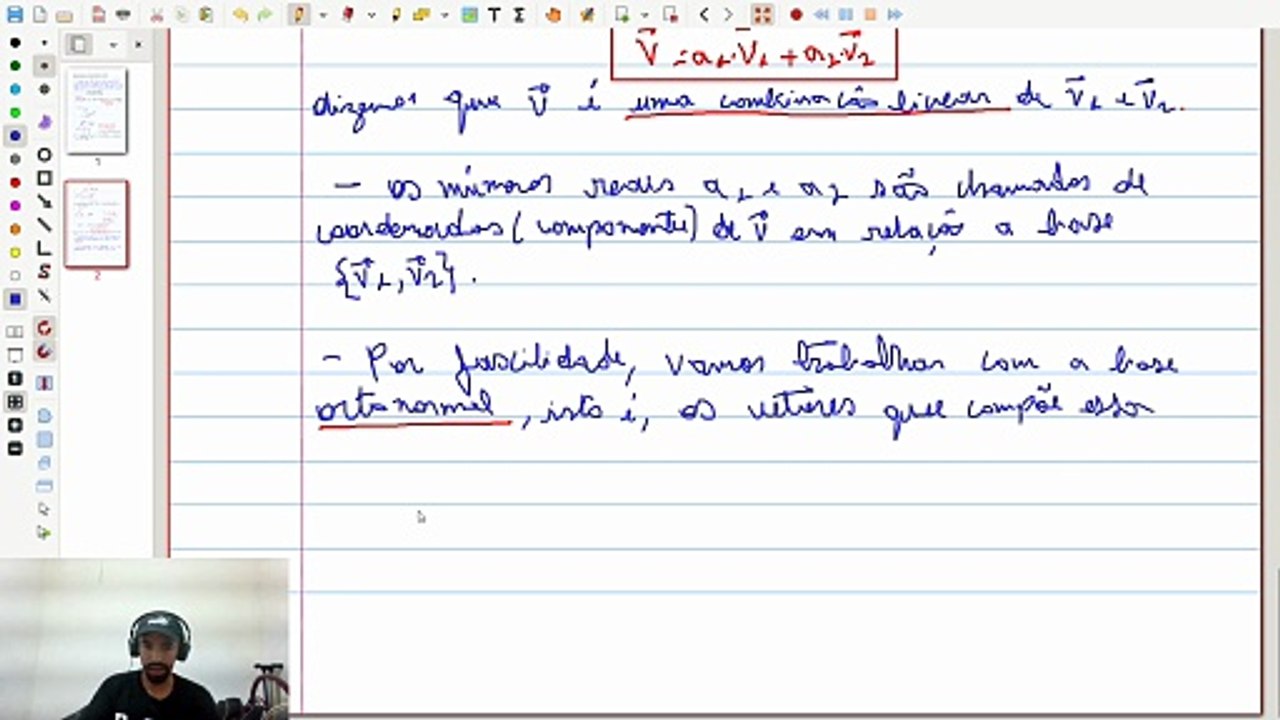 V⃗ = a₁·V⃗₁ + a₂·V⃗₂
dizemos que V⃗ é uma combinação linear de V⃗₁ e V⃗₂.
- os números reais a₁ e a₂ são chamados de
coordenadas (componente) de V⃗ em relação a base
{V⃗₁, V⃗₂}.
- Por fascilidade, vamos trabalhar com a base
ortonormal, isto é, os vetores que compõe essa
1
2